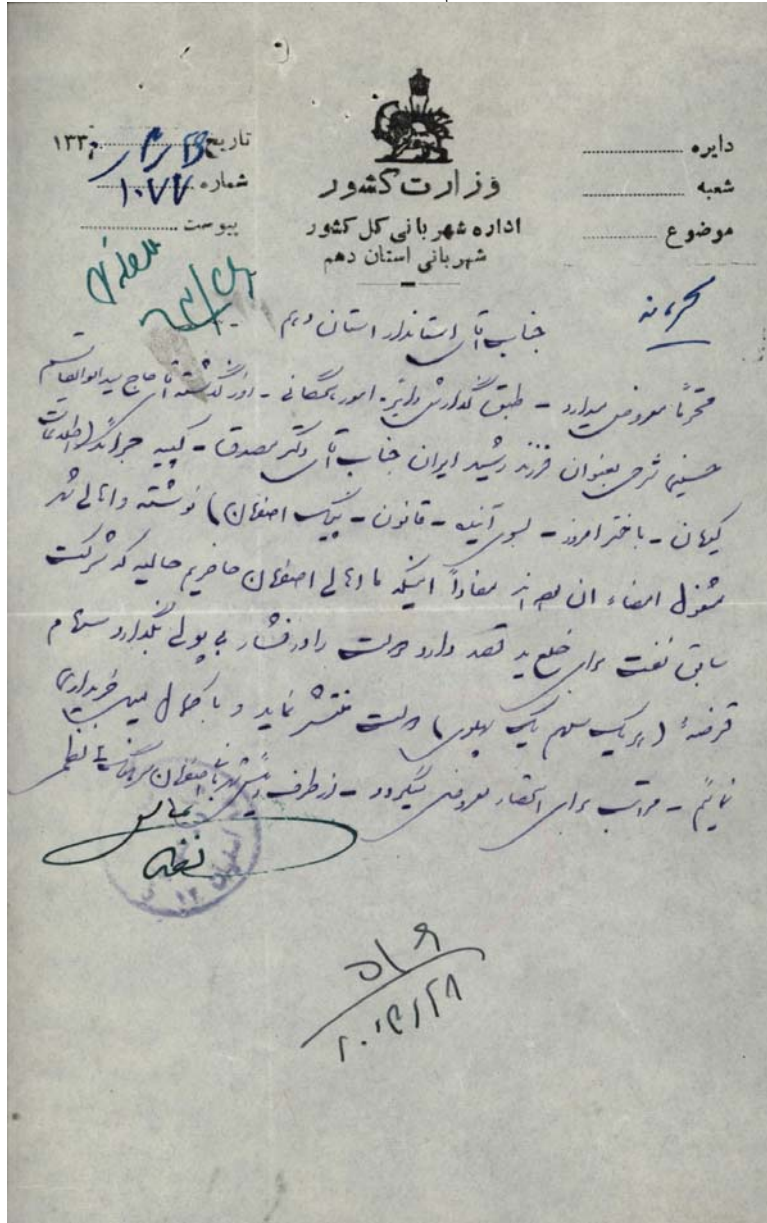 تاریخ ۱۳۳۰
شماره ۱۰۷۷
پیوست
وزارت کشور
اداره شهربانی کل کشور
شهربانی استان دهم
دایره
شعبه
موضوع
محرمانه
جناب آقای استاندار استان دهم
محترماً معروض میدارد - طبق گذارش دایره امور همگانی - روز گذشته آقای حاج سید ابوالقاسم
حسینی شرحی بعنوان فرزند رشید ایران جناب آقای دکتر مصدق - کپیه جراید (اطلاعات
کیهان - باختر امروز - بسوی آینده - قانون - پیک اصفهان) نوشته و اهالی شهر
مشغول امضاء آن مفاداً اینکه ما اهالی اصفهان حاضریم حالیه که شرکت
سابق نفت برای خلع ید قصد دارد دولت را در فشار بی پولی بگذارد سهام
قرضه (هر یک سهم یک پهلوی) دولت منتشر نماید و با کمال میل خریداری
نمائیم - مراتب برای استحضار معروض میگردد - از طرف رئیس شهربانی اصفهان سرهنگ